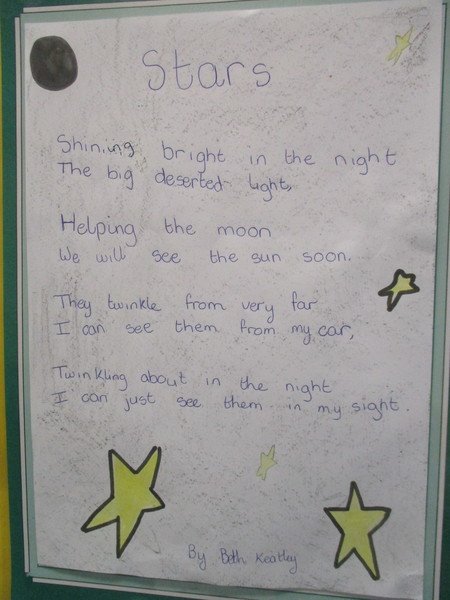 Stars
Shining bright in the night
The big deserted light,
Helping the moon
We will see the sun soon.
They twinkle from very far
I can see them from my car,
Twinkling about in the night
I can just see them in my sight.
By Beth Keatley